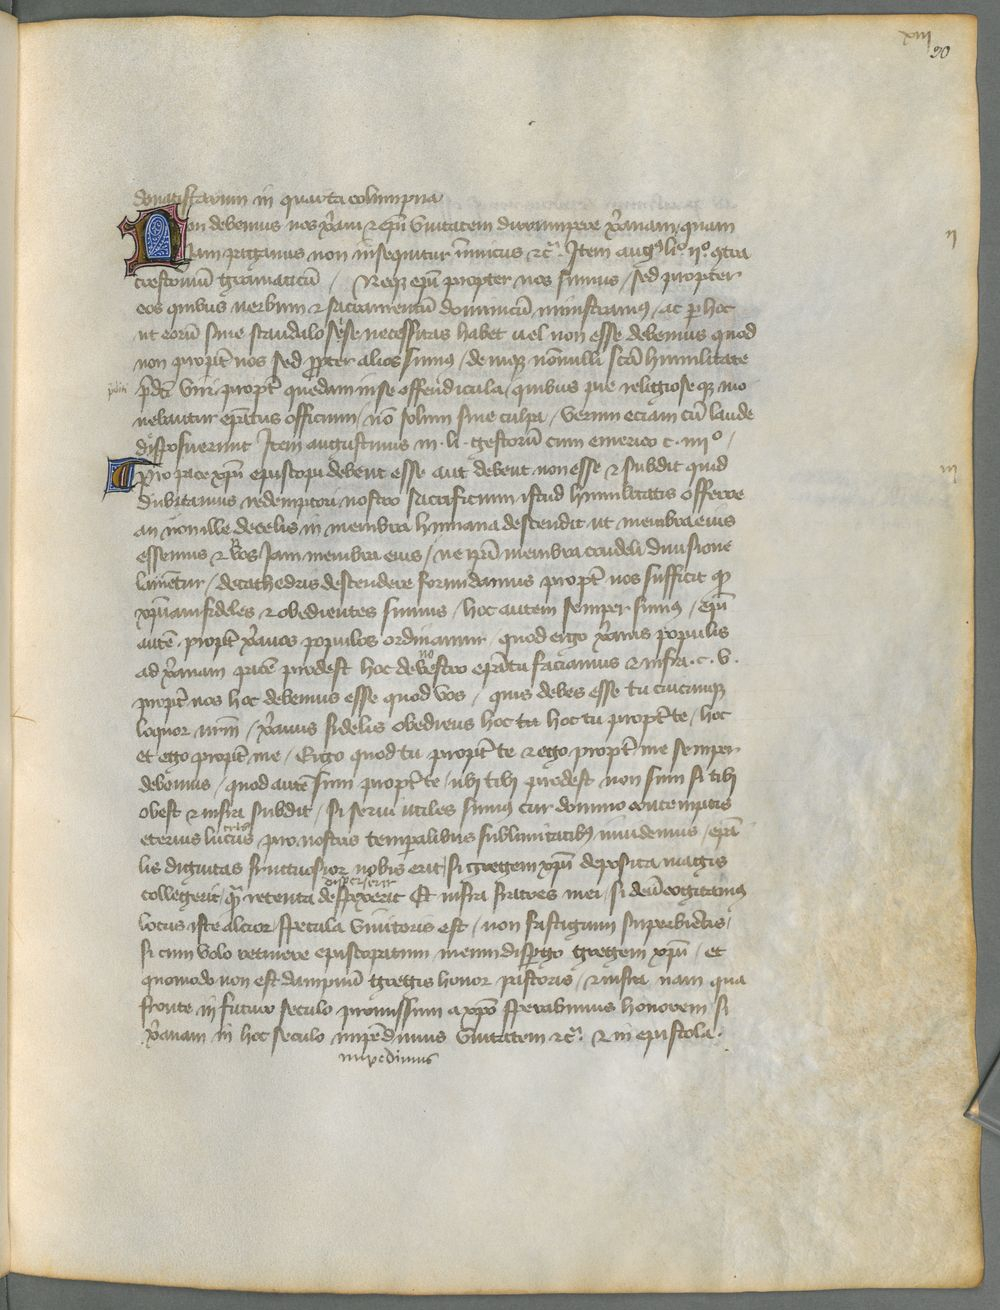 xiii
30
donatistarum in quarta columpna
Non debemus nos xp̄iani ⁊ ep̄i vnitatem dirrumpere xp̄ianam, quam
iam paganus non insequitur inimicus ⁊c̄. Item augꝰ li° ii° ꝯtra
cresconiū gramaticū / Neqꝫ ep̄i propter nos sumus / sed propter
eos quibus uerbum ⁊ sacramentū dominicū ministramꝰ / ac ꝑ hoc
ut eorū sine scandalo sese necessitas habet uel non esse debemus quod
non propt̄ nos sed ꝓpter alios sumꝰ / deniqꝫ nōnulli scā humilitate
p̄diti viri propt̄ quedam in se offendicula / quibus pie religioseqꝫ mo
uebantur ep̄atus officium / nō solum sine culpa / verum eciam cū laude
disposuerunt Item augustinus in li. gestorū cum emerico c. iiii° /
ii
iii
Pro pace xp̄i episcopi debent esse aut debent non esse ⁊ subdit quid
dubitamus redemptori nostro sacrificium istud humilitatis offerre
an uō ille de celis in membra humana descendit ut membra eius
essemus ⁊ nos Iam membra eius / ne ip̄a membra crudeli diuisione
lanietur / de cathedris descendere formidamus propt̄ nos sufficit qꝫ
xp̄iani fideles ⁊ obedientes simus / hoc autem semper simꝰ / ep̄i
autē propt̄ xp̄ianos populos ordinamur quod ergo xp̄ianis populis
ad xp̄ianam pacē prodest hoc de vestro ep̄atu faciamus ⁊ infra . c . v .
no
propt̄ nos hoc debemus esse quod vos / quis debes esse tu cuicumqꝫ
loquor xp̄ianus fidelis obediens hoc tu hoc tu propt̄ te / hoc
et ego propt̄ me / Ergo quod tu propt̄ te ⁊ ego propt̄ me semper
debemus / quod autē sum propt̄ te / ubi tibi prodest non sum si tibi
obest ⁊ infra subdit / si serui utiles sumꝰ cur domino
eternis lucris pro nostris temꝑalibus sublimitatibꝫ inuidemus / ep̄a
lis dignitas fructuosior nobis erit / si gregem xp̄i deposita magis
collegerit / qꝫ retenta despexerit Et infra fratres mei / si deū cogitamꝰ
disperserit
locus iste alcior specula vinitoris est / non fastigium superbientis /
si cum volo retinere episcopatum meum disꝑgo gregem xp̄i / et
quomodo non est dampnū gregis honor pastoris / ⁊ infra nam qua
fronte in futuro seculo promissum a xp̄o sperabimus honorem si
xp̄ianam in hoc seculo impedimus vnitatem ⁊c̄. ⁊ in epistola .
impedimus